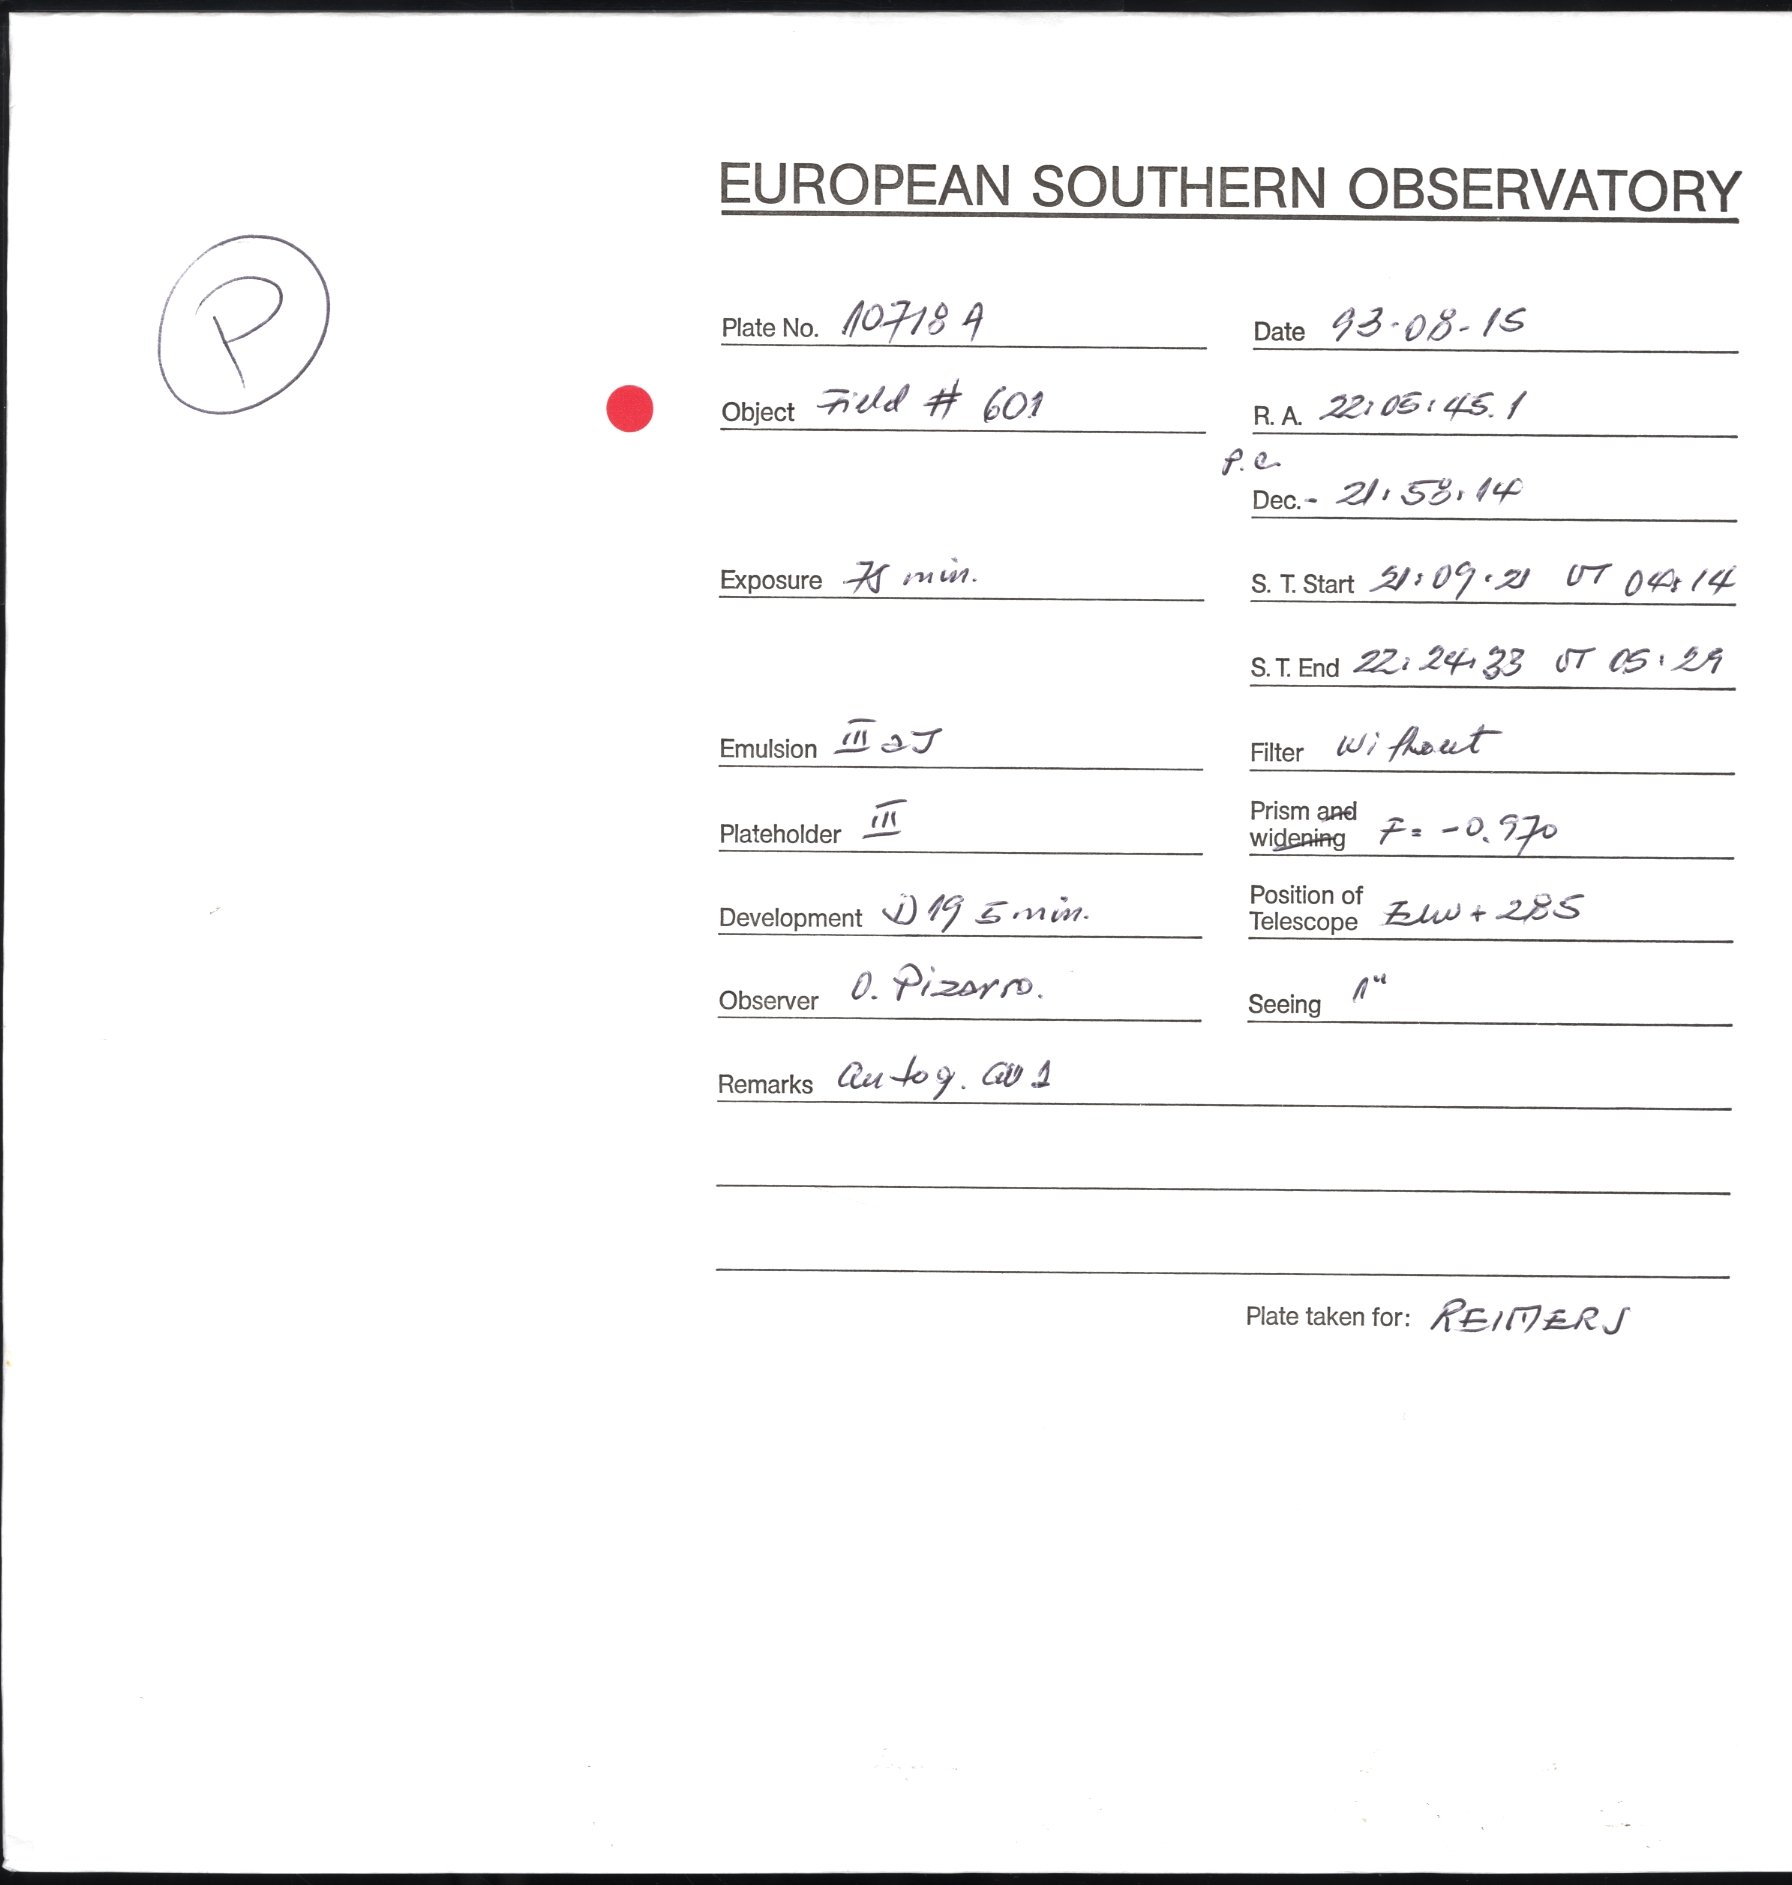 EUROPEAN SOUTHERN OBSERVATORY
P
Plate No. 10718 A
Date 93-08-15
Object Field # 601
R. A. 22:05:45.1
P.C.
Dec. - 21:58:14
Exposure 75 min.
S. T. Start 21:09:21 UT 04:14
S. T. End 22:24:33 UT 05:29
Emulsion III aJ
Filter Without
Plateholder III
Prism and
widening F = -0.970
Development D19 5 min.
Position of
Telescope E/W + 285
Observer O. Pizarro.
Seeing 1"
Remarks Autog.
Plate taken for: REIMERS